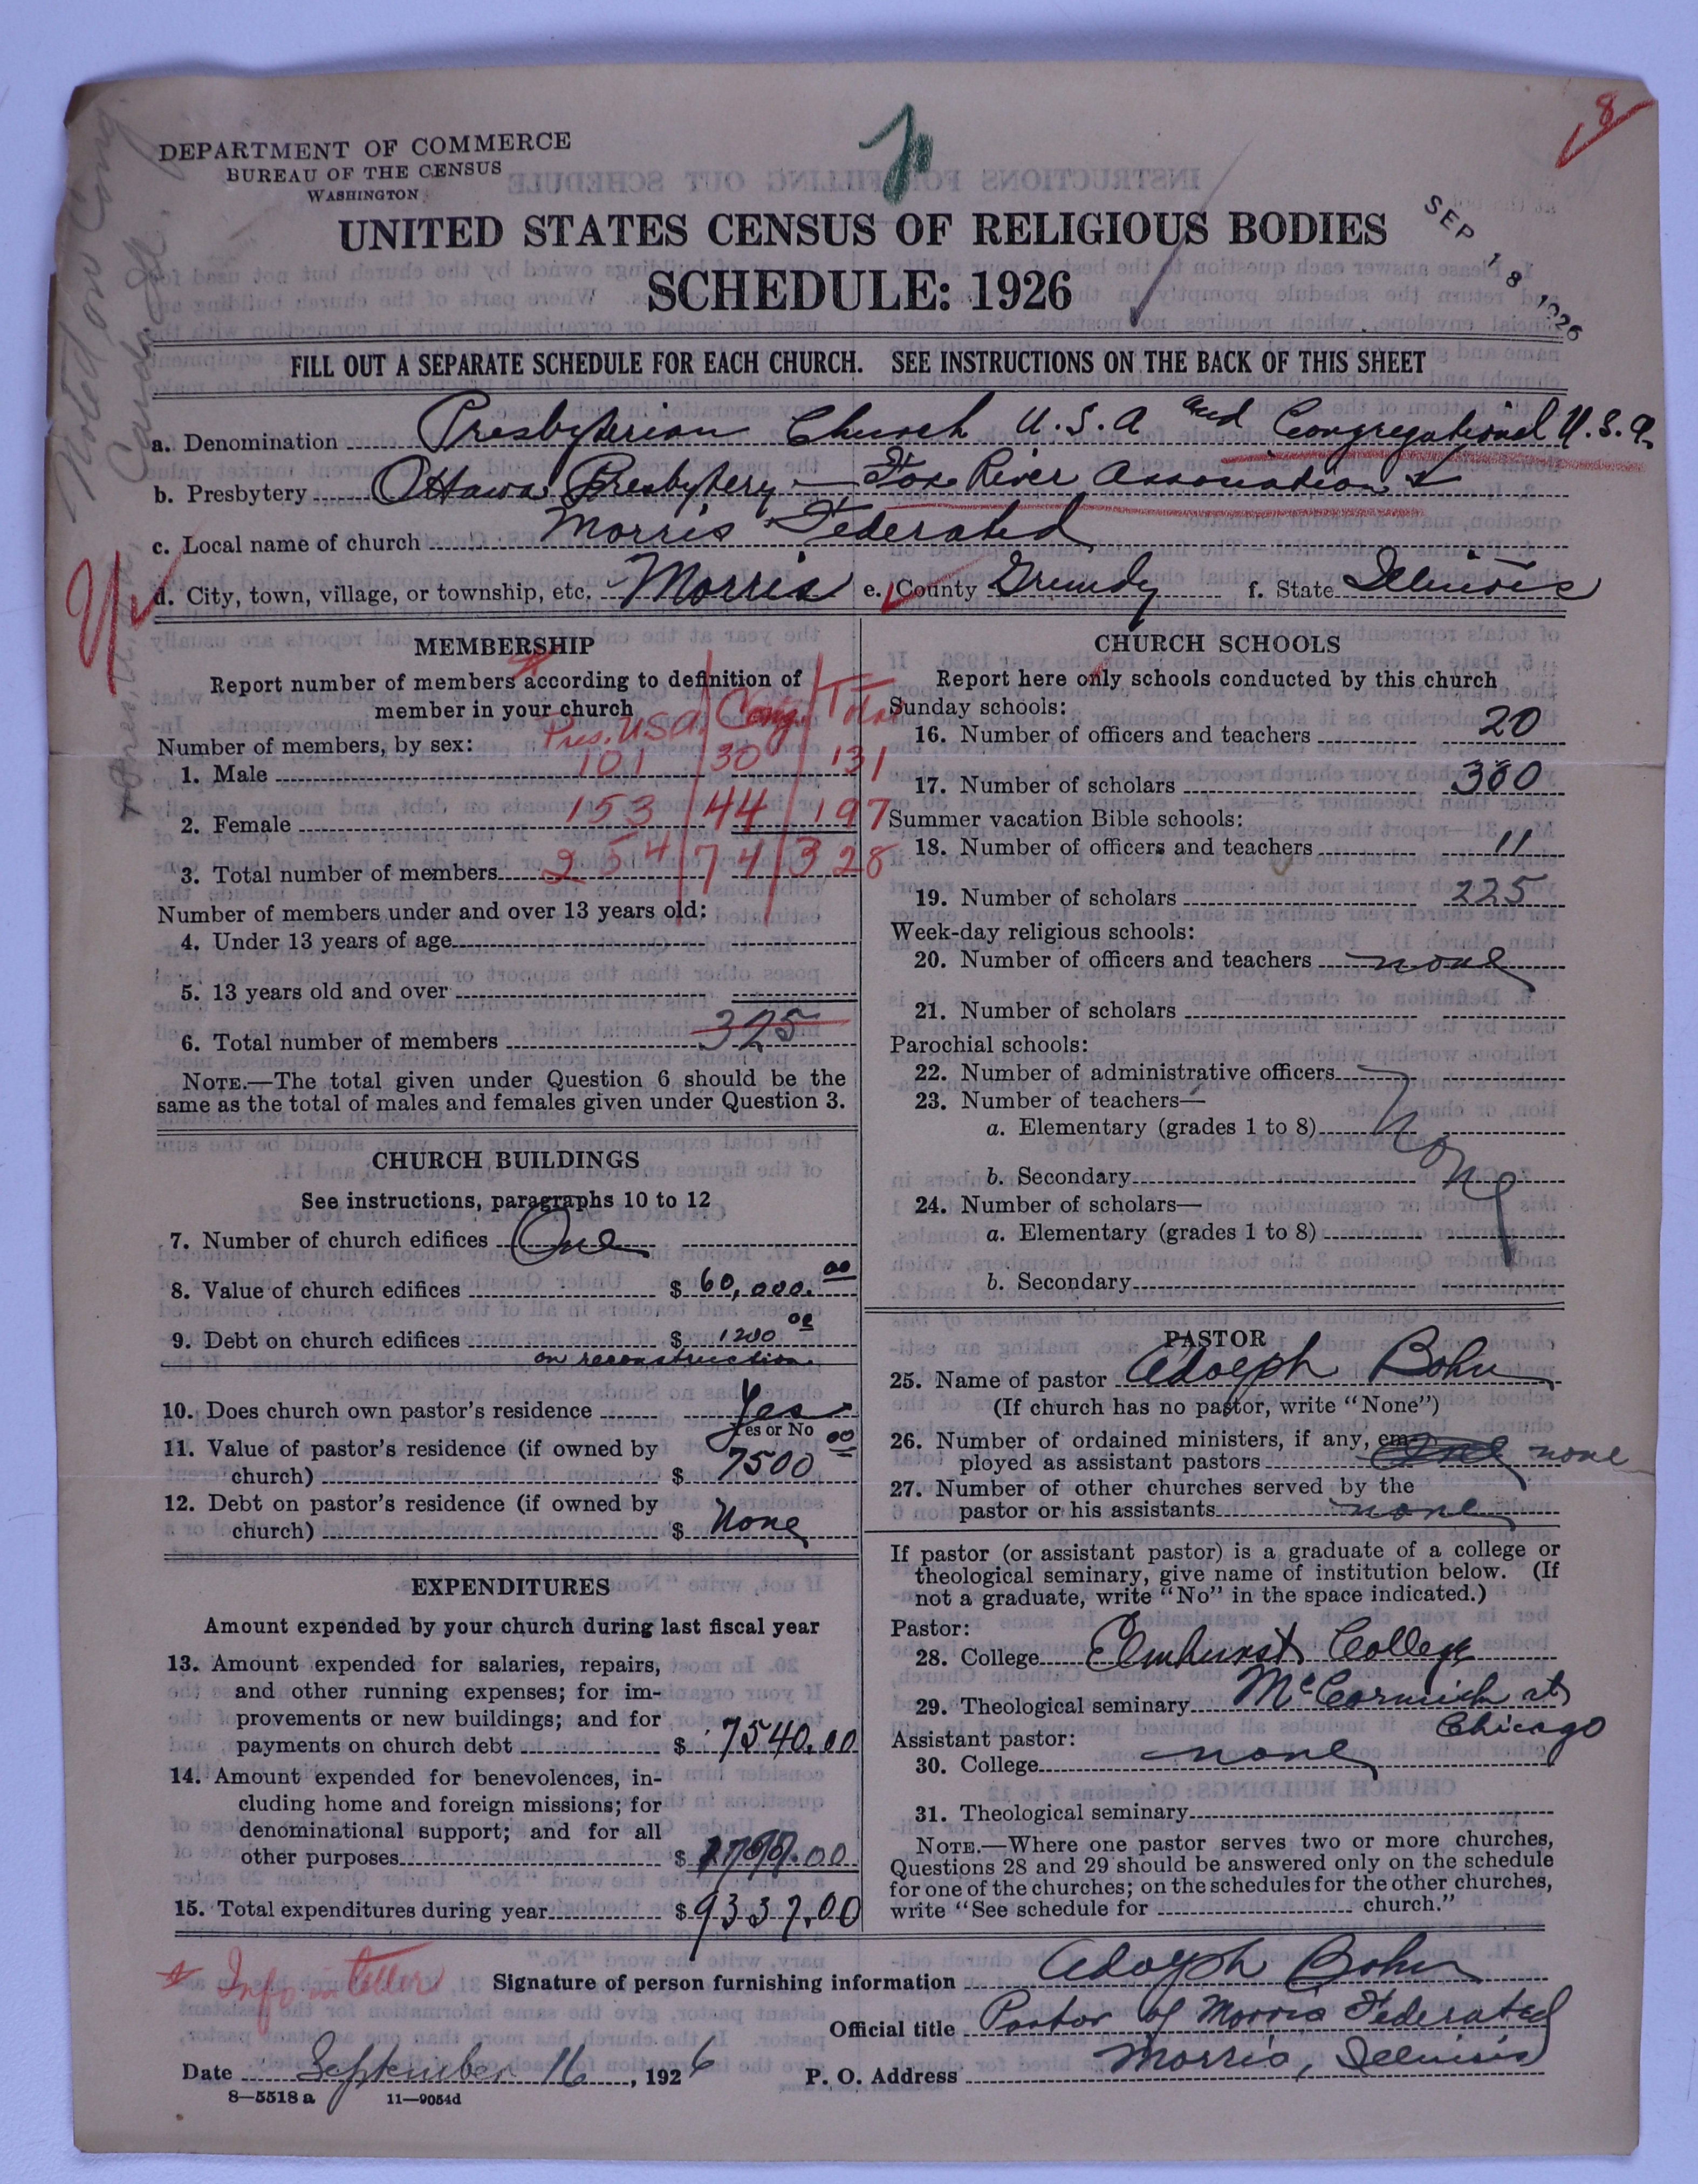 8
DEPARTMENT OF COMMERCE
BUREAU OF THE CENSUS
WASHINGTON
UNITED STATES CENSUS OF RELIGIOUS BODIES
SCHEDULE: 1926
SEP 18 1926
FILL OUT A SEPARATE SCHEDULE FOR EACH CHURCH. SEE INSTRUCTIONS ON THE BACK OF THIS SHEET
a. Denomination Presbyterian Church U.S.A and Congregational U.S.A.
b. Presbytery Ottawa Presbytery — Fox River Association
c. Local name of church Morris Federated
d. City, town, village, or township, etc. Morris e. County Grundy f. State Illinois
MEMBERSHIP
Report number of members according to definition of
member in your church
Pres. U.S.A. Cong. Total
Number of members, by sex:
1. Male 101 30 131
2. Female 153 44 197
3. Total number of members 254 74 328
Number of members under and over 13 years old:
4. Under 13 years of age
5. 13 years old and over
6. Total number of members 325
NOTE.—The total given under Question 6 should be the
same as the total of males and females given under Question 3.
CHURCH BUILDINGS
See instructions, paragraphs 10 to 12
7. Number of church edifices One
8. Value of church edifices $ 60,000.00
9. Debt on church edifices $ 1200 00
on reconstruction.
10. Does church own pastor's residence Yes
Yes or No
11. Value of pastor's residence (if owned by
church) $ 7500 00
12. Debt on pastor's residence (if owned by
church) $ None
EXPENDITURES
Amount expended by your church during last fiscal year
13. Amount expended for salaries, repairs,
and other running expenses; for im-
provements or new buildings; and for
payments on church debt $ 7540.00
14. Amount expended for benevolences, in-
cluding home and foreign missions; for
denominational support; and for all
other purposes $ 1797.00
15. Total expenditures during year $ 9337.00
CHURCH SCHOOLS
Report here only schools conducted by this church
Sunday schools:
16. Number of officers and teachers 20
17. Number of scholars 300
Summer vacation Bible schools:
18. Number of officers and teachers 11
19. Number of scholars 225
Week-day religious schools:
20. Number of officers and teachers none
21. Number of scholars
Parochial schools:
22. Number of administrative officers
23. Number of teachers—
a. Elementary (grades 1 to 8) None
b. Secondary
24. Number of scholars—
a. Elementary (grades 1 to 8)
b. Secondary
PASTOR
25. Name of pastor Adolph Bohn
(If church has no pastor, write "None")
26. Number of ordained ministers, if any, em-
ployed as assistant pastors none
27. Number of other churches served by the
pastor or his assistants none
If pastor (or assistant pastor) is a graduate of a college or
theological seminary, give name of institution below. (If
not a graduate, write "No" in the space indicated.)
Pastor:
28. College Elmhurst College
29. Theological seminary McCormick at
Chicago
Assistant pastor:
30. College none
31. Theological seminary
NOTE.—Where one pastor serves two or more churches,
Questions 28 and 29 should be answered only on the schedule
for one of the churches; on the schedules for the other churches,
write "See schedule for church."
* Info in letter
Signature of person furnishing information Adolph Bohn
Official title Pastor of Morris Federated
Date September 16, 1926 P. O. Address Morris, Illinois
8—5518 a 11—9054d